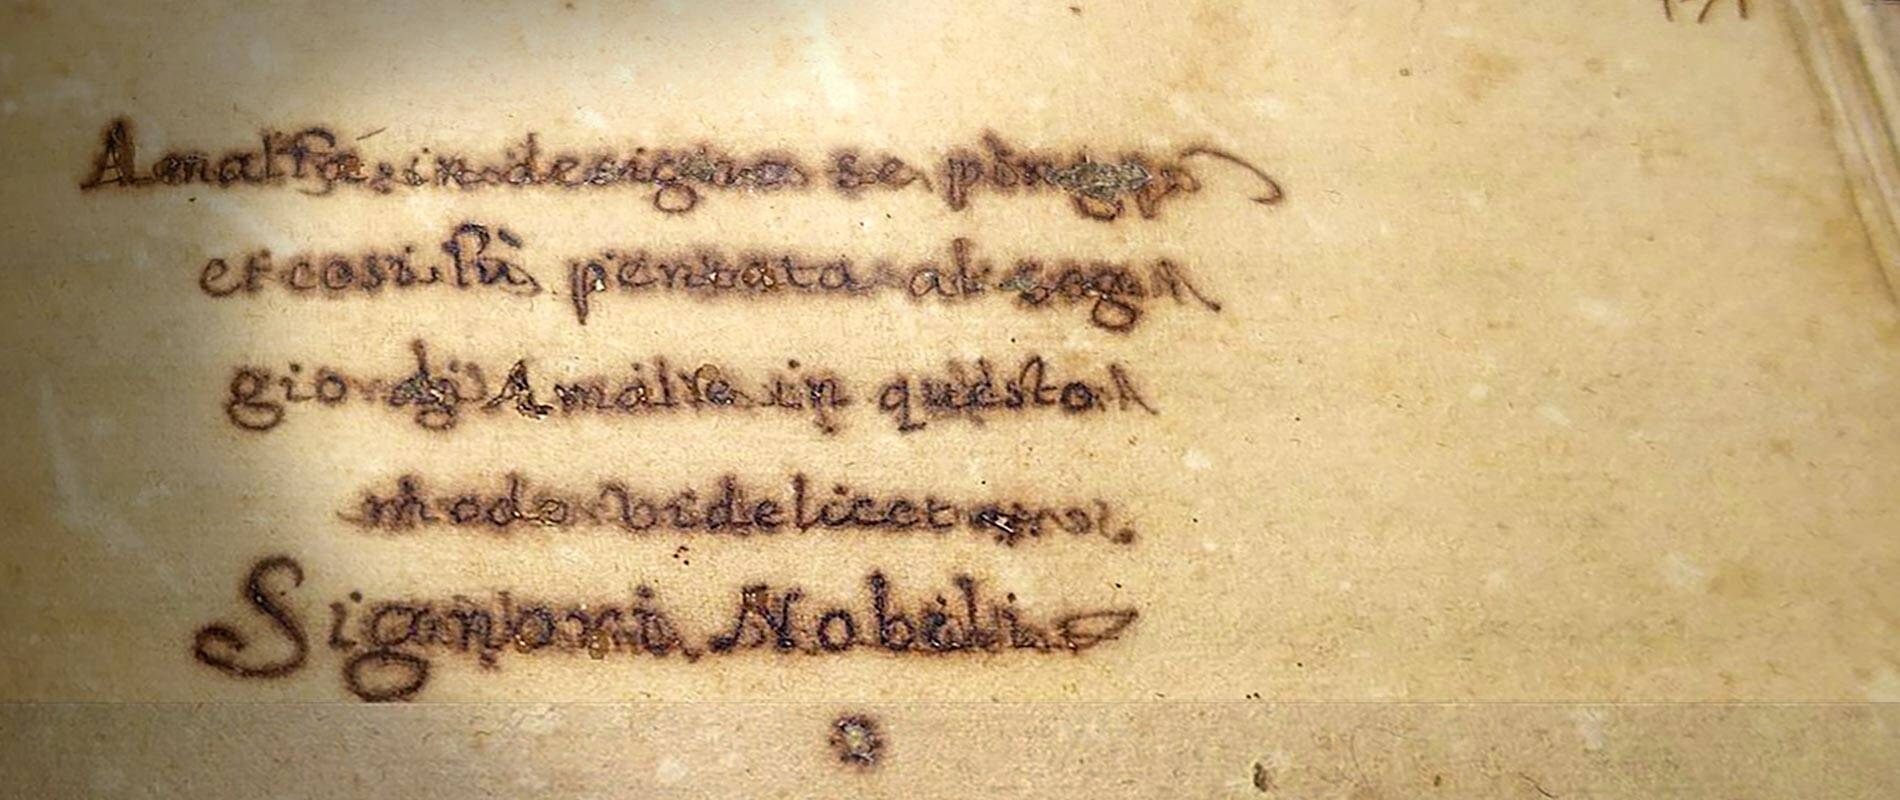 Amalfa, in designo se pinge
et cosi fù pentata al seg
gio di Amalfa in questo
modo videlicet
Signori Nobili